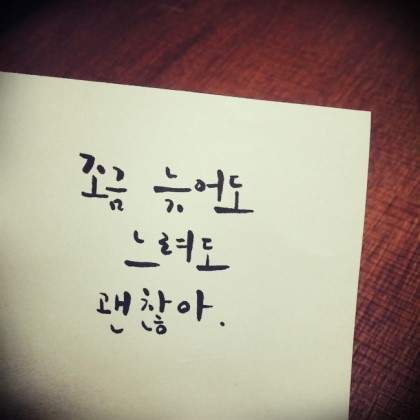 조금 늦어도
느려도
괜찮아.